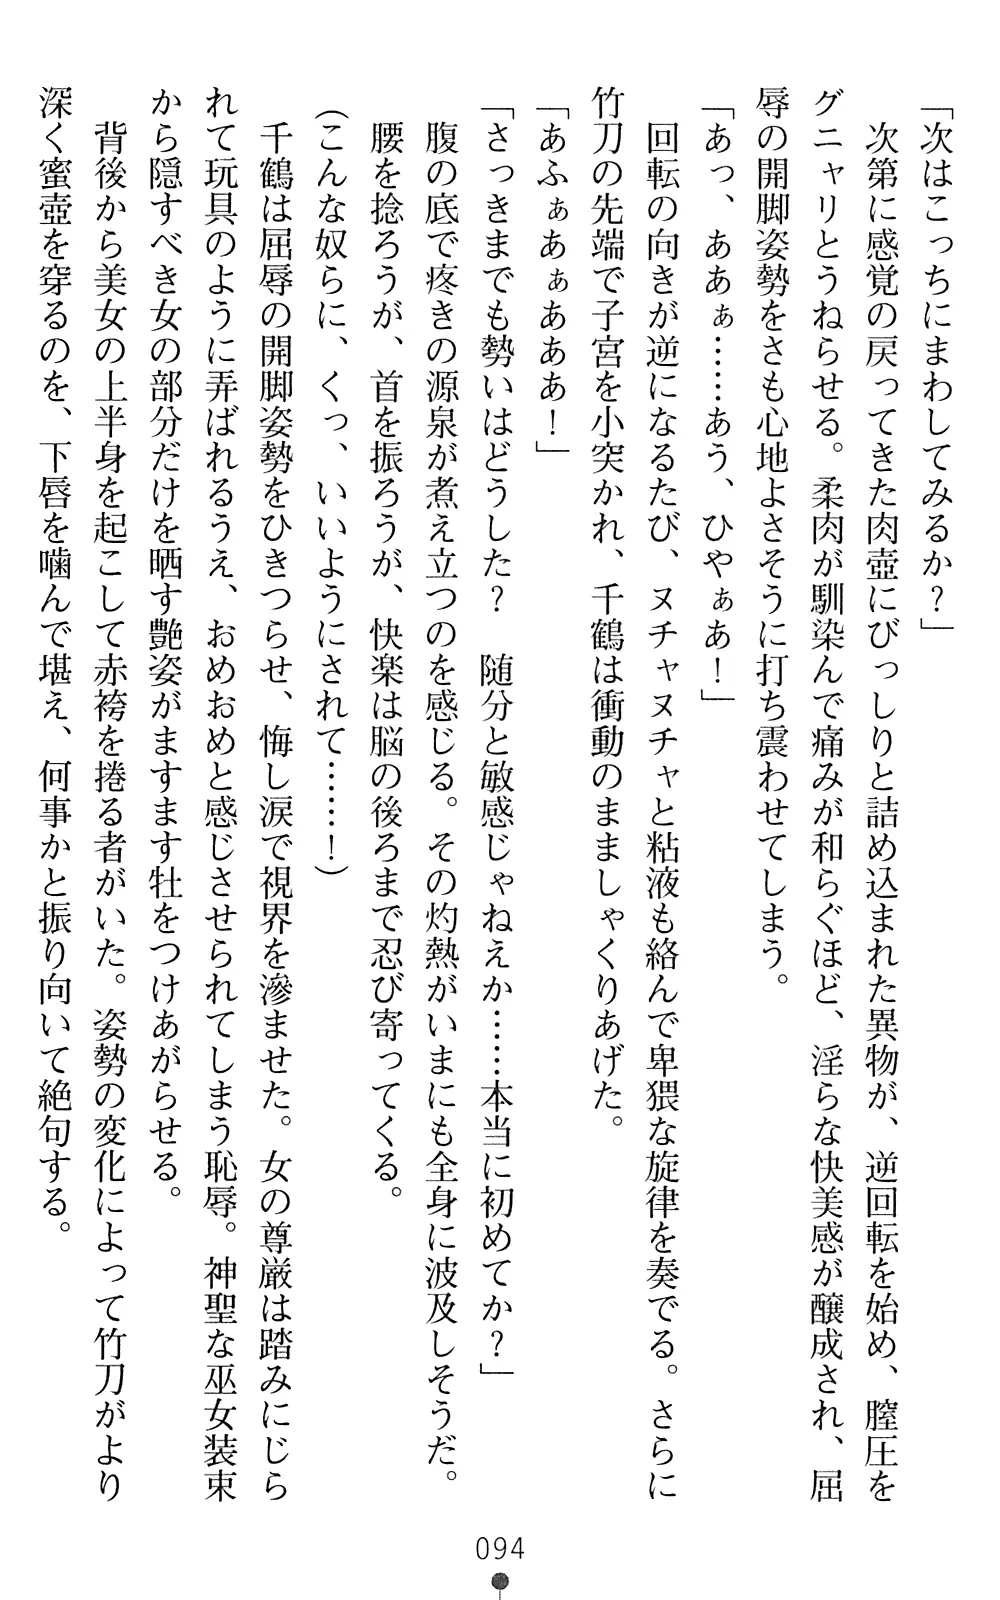 「次はこっちにまわしてみるか？」
次第に感覚の戻ってきた肉壺にびっしりと詰め込まれた異物が、逆回転を始め、膣圧を
グニャリとうねらせる。柔肉が馴染んで痛みが和らぐほど、淫らな快美感が醸成され、屈
辱の開脚姿勢をさも心地よさそうに打ち震わせてしまう。
「あっ、ああぁ……あう、ひやぁあ！」
回転の向きが逆になるたび、ヌチャヌチャと粘液も絡んで卑猥な旋律を奏でる。さらに
竹刀の先端で子宮を小突かれ、千鶴は衝動のまましゃくりあげた。
「あふぁあぁあああ！」
「さっきまでも勢いはどうした？　随分と敏感じゃねえか……本当に初めてか？」
腹の底で疼きの源泉が煮え立つのを感じる。その灼熱がいまにも全身に波及しそうだ。
腰を捻ろうが、首を振ろうが、快楽は脳の後ろまで忍び寄ってくる。
（こんな奴らに、くっ、いいようにされて……！）
千鶴は屈辱の開脚姿勢をひきつらせ、悔し涙で視界を滲ませた。女の尊厳は踏みにじら
れて玩具のように弄ばれるうえ、おめおめと感じさせられてしまう恥辱。神聖な巫女装束
から隠すべき女の部分だけを晒す艶姿がますます牡をつけあがらせる。
背後から美女の上半身を起こして赤袴を捲る者がいた。姿勢の変化によって竹刀がより
深く蜜壺を穿るのを、下唇を噛んで堪え、何事かと振り向いて絶句する。
094